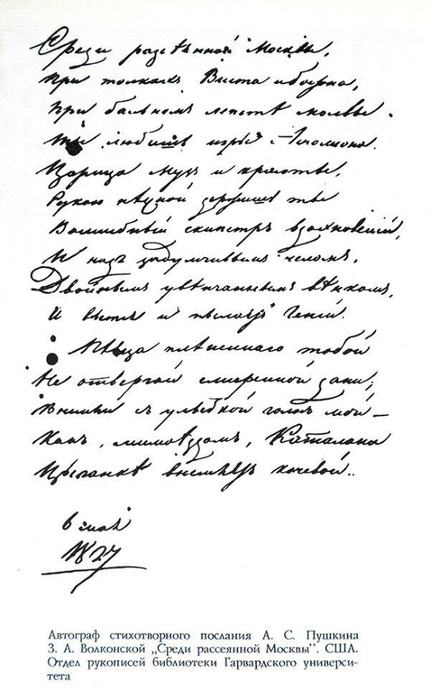 Среди разсѣянной Москвы,
При толкахъ Виста и бостона,
При бальномъ лепетѣ молвы
Ты любишь игры Аполлона.
Царица музъ и красоты,
Рукою нѣжной держишь ты
Волшебный скипетръ вдохновений,
И надъ задумчивымъ челомъ,
Двойнымъ увѣнчаннымъ вѣнкомъ,
И вьется и пылаетъ Гений.
Пѣвца плѣненнаго тобой
Не отвергай смиренной дани;
Внемли съ улыбкой голосъ мой —
Какъ, мимоѣздомъ, Каталани
Цыганкѣ внемлетъ кочевой..
6 мая
1827
Автограф стихотворного послания А. С. Пушкина
З. А. Волконской „Среди рассеянной Москвы". США.
Отдел рукописей библиотеки Гарвардского универси-
тета